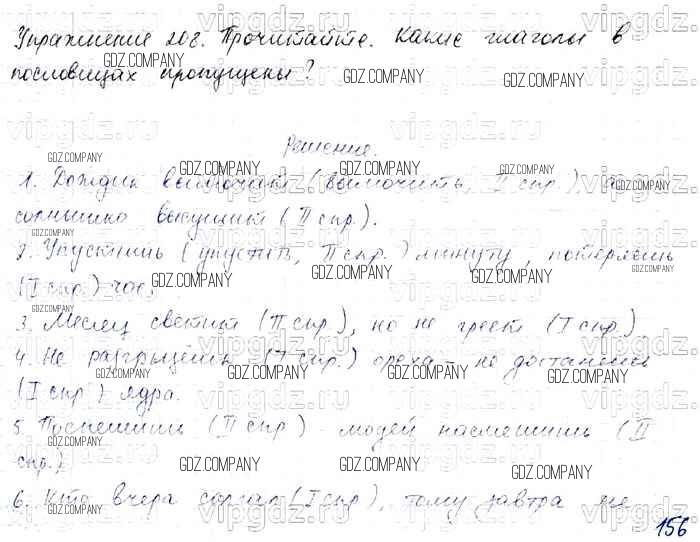 Упражнение 208. Прочитайте. Какие глаголы в
пословицах пропущены?
Решение.
1. Дождик вымочит (вымочить, II спр.), а
солнышко высушит (II спр.).
2. Упустишь (упустить, II спр.) минуту, потеряешь
(I спр.) час.
3. Месяц светит (II спр.), но не греет (I спр.)
4. Не разгрызёшь (I спр.) ореха – не достанешь
(I спр.) ядра.
5. Поспешишь (II спр.) людей насмешишь (II
спр.)
6. Кто вчера солгал (I спр), тому завтра не
156
GDZ.COMPANY
vipgdz.ru